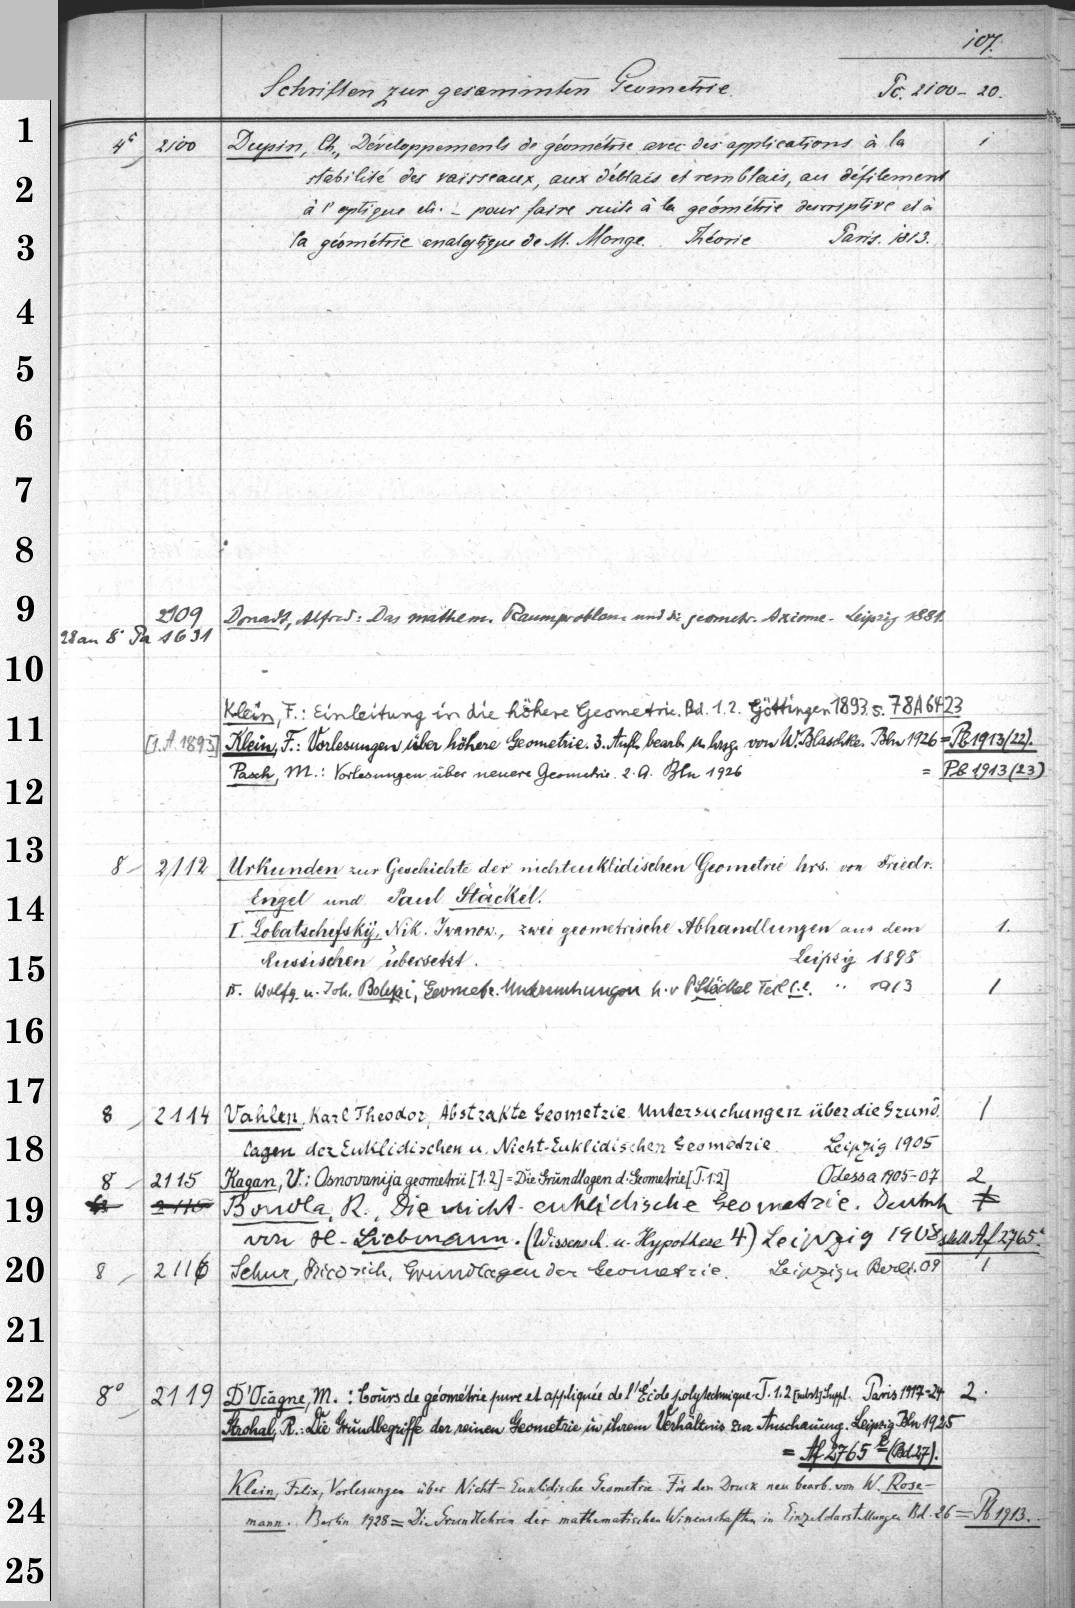 107.
Schriften zur gesammten Geometrie. Pc. 2100-20.
4° 2100 Dupin, Ch., Développements de géométrie avec des applications à la 1
stabilité des vaisseaux, aux déblais et remblais, au défilement
à l'optique etc. - pour faire suite à la géométrie descriptive et à
la géométrie analytique de M. Monge. Théorie Paris. 1813.
2109 Donadt, Alfred: Das mathem. Raumproblem und die geometr. Axiome. Leipzig 1881.
28 an 8° Pa 1631
Klein, F.: Einleitung in die höhere Geometrie. Bd. 1.2. Göttingen 1893 s. 78A6423
[1. A. 1893] Klein, F.: Vorlesungen über höhere Geometrie. 3. Aufl. bearb. u. hrsg. von W. Blaschke. Bln 1926 = Pb 1913(22).
Pasch, M.: Vorlesungen über neuere Geometrie. 2. A. Bln 1926 = Pb 1913(23)
8 2112 Urkunden zur Geschichte der nichteuklidischen Geometrie hrs. von Friedr.
Engel und Paul Stäckel.
I. Lobatschefskij, Nik. Iwanow., zwei geometrische Abhandlungen aus dem 1.
Russischen übersetzt. Leipzig 1898
II. Wolfg. u. Joh. Bolyai, Geometr. Untersuchungen h. v P Stäckel Teil 1.2. " 1913 1
8 2114 Vahlen, Karl Theodor, Abstrakte Geometrie. Untersuchungen über die Grund 1
lagen der Euklidischen u. Nicht-Euklidischen Geometrie. Leipzig 1905
8 2115 Kagan, V.: Osnovanija geometrii [1.2] = Die Grundlagen d. Geometrie [T. 1.2] Odessa 1905-07 2
8 2116 Bonola, R., Die nicht-euklidische Geometrie. Deutsch 1
von H. Liebmann. (Wissensch. u. Hypothese 4) Leipzig 1908 steht Af 2765.
8 2116 Schur, Friedrich, Grundlagen der Geometrie. Leipzig u Berl. 09 1
8° 2119 D'Ocagne, M.: Cours de géométrie pure et appliquée de l'École polytechnique. T. 1.2 Suppl. Paris 1917-24 2.
Strohal, R.: Die Grundbegriffe der reinen Geometrie in ihrem Verhältnis zur Anschauung. Leipzig Bln 1925
= Af 2765 (Bd 27).
Klein, Felix, Vorlesungen über Nicht-Euklidische Geometrie. Für den Druck neu bearb. von W. Rose-
mann. Berlin 1928 = Die Grundlehren der mathematischen Wissenschaften in Einzeldarstellungen Bd. 26 = Pb 1913.
1
2
3
4
5
6
7
8
9
10
11
12
13
14
15
16
17
18
19
20
21
22
23
24
25